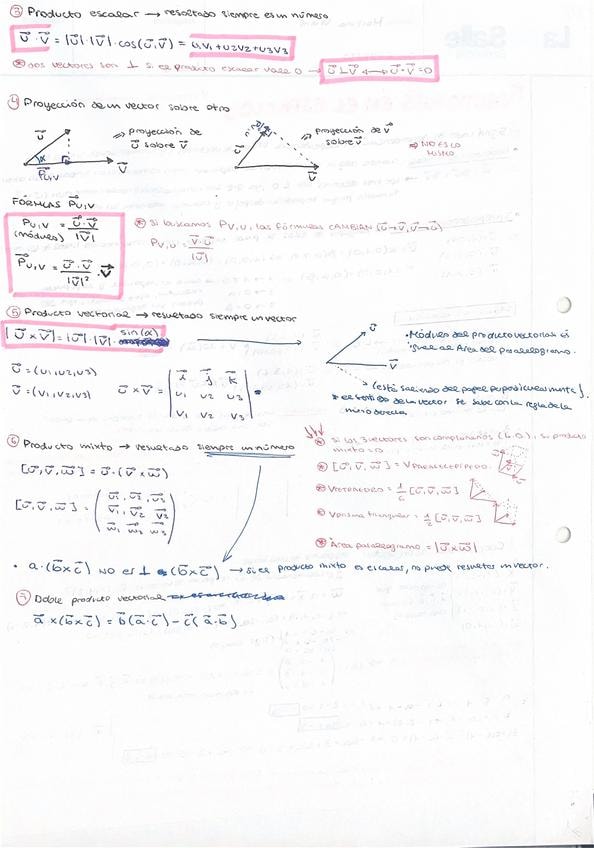 ③ Producto escalar → resultado siempre es un número
ū · v̄ = |ū|·|v̄|·cos(ū,v̄) = u₁v₁+u₂v₂+u₃v₃
* dos vectores son ⊥ si el producto escalar vale 0 → ū⊥v̄ ↔ ū·v̄=0
④ Proyección de un vector sobre otro
ū
α
P̄u,v
v̄
⇒ proyección de ū sobre v̄
v̄
⇒ proyección de v̄ sobre ū
⇒ NO ES LO MISMO
FÓRMULAS P̄u,v
Pu,v = ū·v̄ / |v̄|
(módulo)
P̄u,v = ū·v̄ / |v̄|² · v̄
* Si buscamos Pv,u, las fórmulas CAMBIAN (ū→v̄, v̄→ū)
Pv,u = v̄·ū / |ū|
⑤ Producto vectorial → resultado siempre un vector
|ū×v̄| = |ū|·|v̄|· sin(α)
ū
v̄
• Módulo del producto vectorial es igual al Área del paralelogramo.
ū = (u₁,u₂,u₃)
v̄ = (v₁,v₂,v₃)
ū×v̄ = | i j k |
u₁ u₂ u₃
v₁ v₂ v₃
(está saliendo del papel perpendicularmente).
* el sentido de la vector se sabe con la regla de la mano derecha
⑥ Producto mixto → resultado siempre un número
[ū,v̄,w̄] = ū·(v̄×w̄)
[ū,v̄,w̄] = ( u₁ u₂ u₃
v₁ v₂ v₃
w₁ w₂ w₃ )
* Si los 3 vectores son complanarios, su producto mixto = 0
* [ū,v̄,w̄] = V PARALELEPÍPEDO
* V TETRAEDRO = 1/6 [ū,v̄,w̄]
* V prisma triangular = 1/2 [ū,v̄,w̄]
* Área paralelogramo = |ū×w̄|
• a·(b̄×c̄) NO ES ⊥ a (b̄×c̄) → si el producto mixto es escalar, no puede resultar un vector.
⑦ Doble producto vectorial
ā×(b̄×c̄) = b̄(ā·c̄) − c̄(ā·b̄)